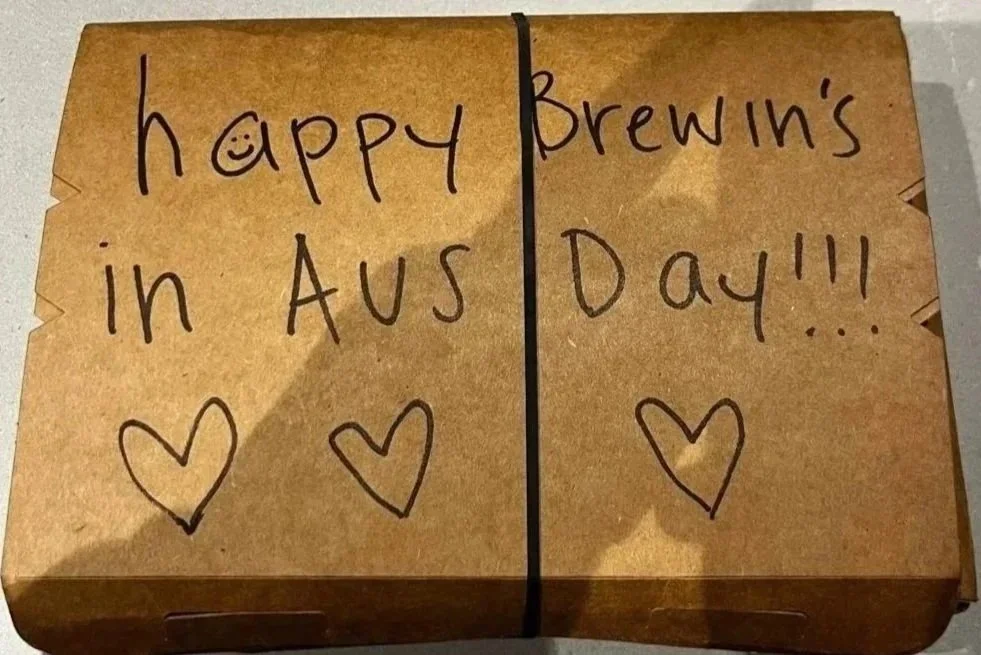 happy Brewin's
in Aus Day!!!